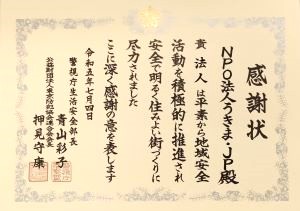 感謝状
NPO法人うきま・JP殿
貴法人は平素から地域安全
活動を積極的に推進され
安全で明るく住みよい街づくりに
尽力されました
ここに深く感謝の意を表します
令和五年七月四日
警視庁生活安全部長
青山彩子
公益財団法人東京防犯協会連合会会長
押見守康